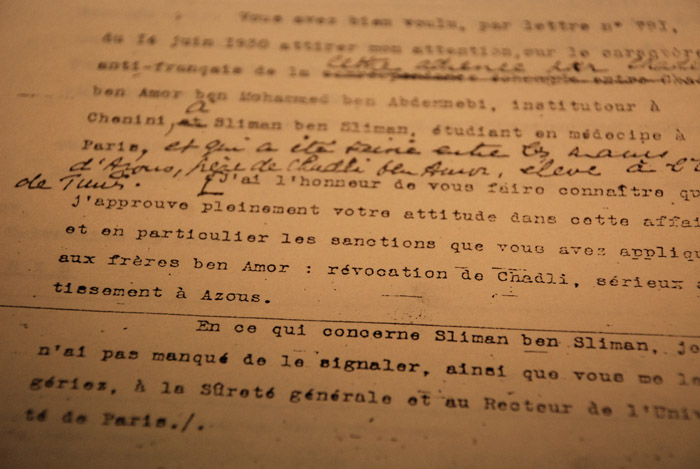 Vous avez bien voulu, par lettre n° 791,
du 14 juin 1930 attirer mon attention, sur le caractère
anti-français de la lettre adressée par Chadli
ben Amor ben Mohammed ben Abdennebi, instituteur à
Chenini, à Sliman ben Sliman, étudiant en médecine à
Paris, et qui a été saisie entre les mains
d'Azous, frère de Chadli ben Amor, élève à l'
de Tunis. [J'ai l'honneur de vous faire connaître qu
j'approuve pleinement votre attitude dans cette affai
et en particulier les sanctions que vous avez appliqu
aux frères ben Amor : révocation de Chadli, sérieux a
tissement à Azous.
En ce qui concerne Sliman ben Sliman, je
n'ai pas manqué de le signaler, ainsi que vous me le
gériez, à la Sûreté générale et au Recteur de l'Univ
té de Paris./.